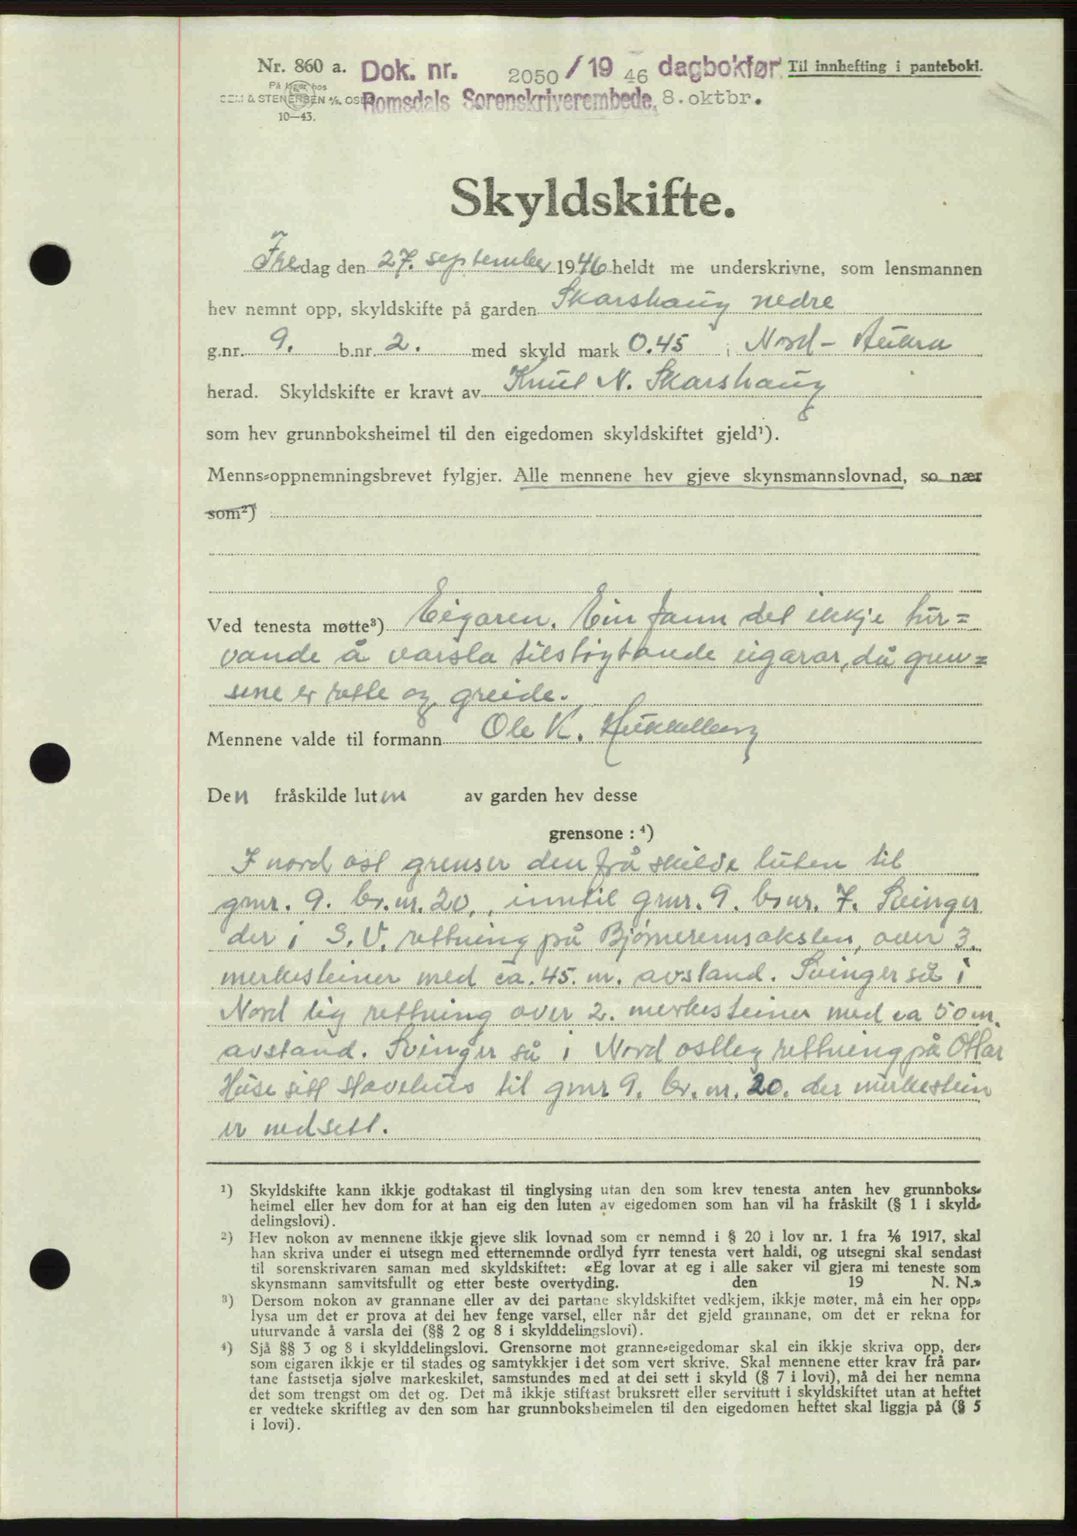 Nr. 860 a. Dok. nr. 2050 / 19 46 dagbokført Til innhefting i pantebok.
På lager hos
SEM & STENERSEN A/S, OSLO Romsdals Sorenskriverembede, 8.oktbr.
10—43.
Skyldskifte.
Fredag den 27. september 1946 heldt me underskrivne, som lensmannen
hev nemnt opp, skyldskifte på garden Skarshaug nedre
g.nr. 9. b.nr. 2. med skyld mark 0.45 i Nord-Aukra
herad. Skyldskifte er kravt av Knut N. Skarshaug
som hev grunnboksheimel til den eigedomen skyldskiftet gjeld¹).
Menns-oppnemningsbrevet fylgjer. Alle mennene hev gjeve skynsmannslovnad, so nær
som²)
Ved tenesta møtte³) Eigaren. Ein fann det ikkje tur=
vande å varsla tilstøytande eigarar, då gren=
sene er rette og greide.
Mennene valde til formann Ole K. Hukkelberg
Den fråskilde luten av garden hev desse
grensone : ⁴)
I nord ost grenser den frå skilde luten til
gmr. 9. br. nr. 20., inntil gmr. 9. br nr. 7. Svinger
der i S.V. rettning på Bjørneremsakslen, over 3.
merkesteiner med ca. 45. m. avstand. Svinger så i
Nord lig rettning over 2. merkesteiner med ca 50 m.
avstand. Svinger så i Nord ostleg rettning på Ottar
Huse sitt stovehus til gmr 9. br. nr. 20. der merkestein
er nedsett.
¹) Skyldskifte kann ikkje godtakast til tinglysing utan den som krev tenesta anten hev grunnboks-
heimel eller hev dom for at han eig den luten av eigedomen som han vil ha fråskilt (§ 1 i skyld-
delingslovi).
²) Hev nokon av mennene ikkje gjeve slik lovnad som er nemnd i § 20 i lov nr. 1 fra ⅙ 1917, skal
han skriva under ei utsegn med etternemnde ordlyd fyrr tenesta vert haldi, og utsegni skal sendast
til sorenskrivaren saman med skyldskiftet: «Eg lovar at eg i alle saker vil gjera mi teneste som
skynsmann samvitsfullt og etter beste overtyding. den 19 N. N.»
³) Dersom nokon av grannane eller av dei partane skyldskiftet vedkjem, ikkje møter, må ein her opp-
lysa um det er prova at dei hev fenge varsel, eller når det gjeld grannane, om det er rekna for
uturvande å varsla dei (§§ 2 og 8 i skylddelingslovi).
⁴) Sjå §§ 3 og 8 i skylddelingslovi. Grensorne mot granne-eigedomar skal ein ikkje skriva opp, der-
som eigaren ikkje er til stades og samtykkjer i det som vert skrive. Skal mennene etter krav frå par-
tane fastsetja sjølve markeskilet, samstundes med at dei sett i skyld (§ 7 i lovi), må dei her nemna
det som trengst om det og. Det må ikkje stiftast bruksrett eller servitutt i skyldskiftet utan at heftet
er vedteke skriftleg av den som har grunnboksheimelen til den eigedomen heftet skal liggja på (§ 5
i lovi).